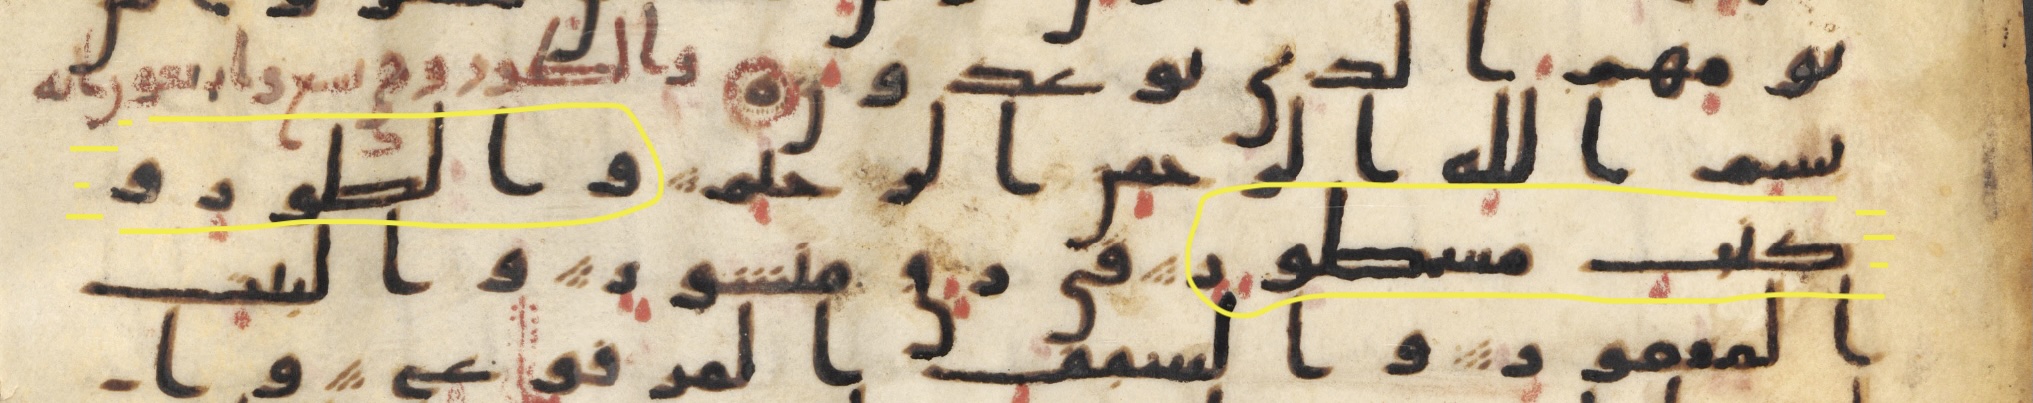 يومهم الذي يوعدون والطور وهي سبع واربعون ايه
بسم الله الرحمن الرحيم والطور و
كتب مسطور في رق منشور والبيت
المعمور والسقف المرفوع وا